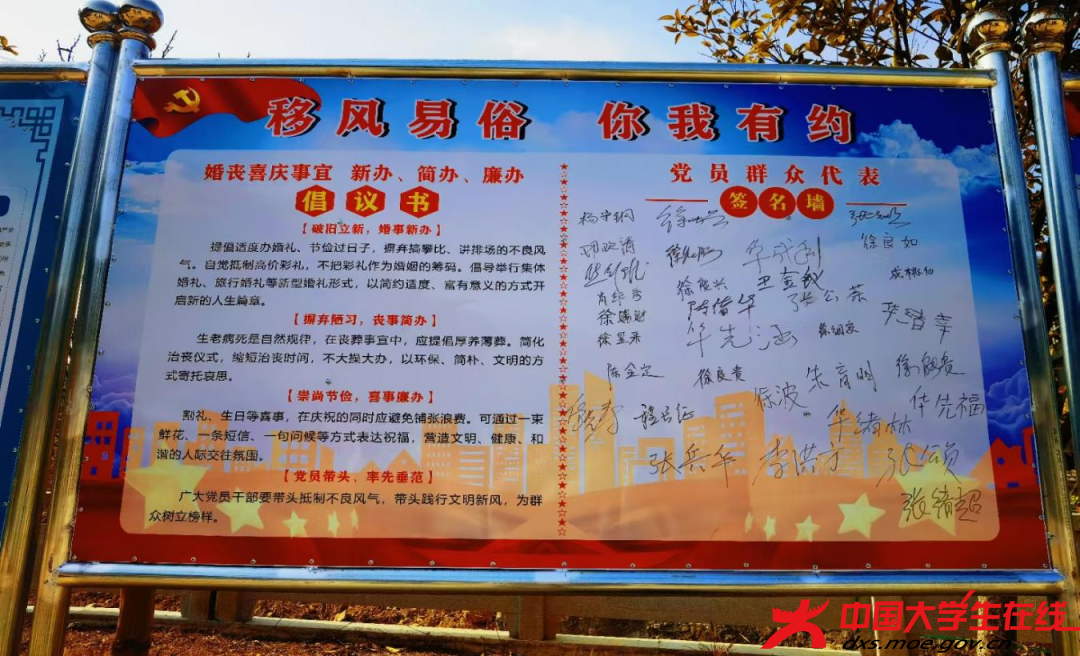 移风易俗 你我有约
婚丧喜庆事宜 新办、简办、廉办
倡议书
【破旧立新，婚事新办】
提倡适度办婚礼、节俭过日子，摒弃搞攀比、讲排场的不良风
气。自觉抵制高价彩礼，不把彩礼作为婚姻的筹码。倡导举行集体
婚礼、旅行婚礼等新型婚礼形式，以简约适度、富有意义的方式开
启新的人生篇章。
【摒弃陋习，丧事简办】
生老病死是自然规律，在丧葬事宜中，应提倡厚养薄葬。简化
治丧仪式，缩短治丧时间，不大挨大办，以环保、简朴、文明的方
式寄托哀思。
【崇尚节俭，喜事廉办】
割礼、生日等喜事，在庆祝的同时应避免铺张浪费。可通过一束
鲜花、一条短信、一句问候等方式表达祝福，营造文明、健康、和
谐的人际交往氛围。
【党员带头、率先垂范】
广大党员干部要带头抵制不良风气，带头践行文明新风，为群
众树立榜样。
党员群众代表
签名墙
徐良如
华先涵
徐良贵
徐波
朱育明
华先福
华绪林
张兵华
李洪才
张颂
张绪超
中国大学生在线
dxs.moe.gov.cn